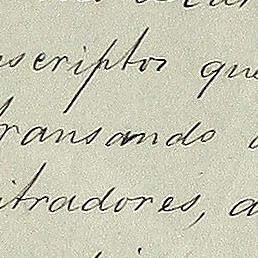 scriptos que
transando
itradores, a